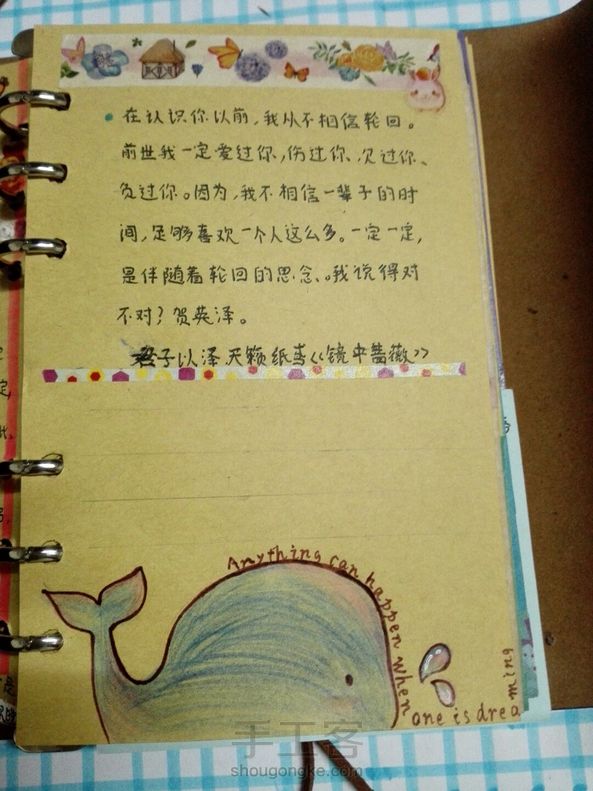 在认识你以前,我从不相信轮回。
前世我一定爱过你,伤过你、欠过你、
负过你。因为,我不相信一辈子的时
间,足够喜欢一个人这么多。一定一定,
是伴随着轮回的思念、。我说得对
不对?贺英泽。
君子以泽 天籁纸鸢《镜中蔷薇》
Anything can happen when one is dreaming
手工客
shougongke.com